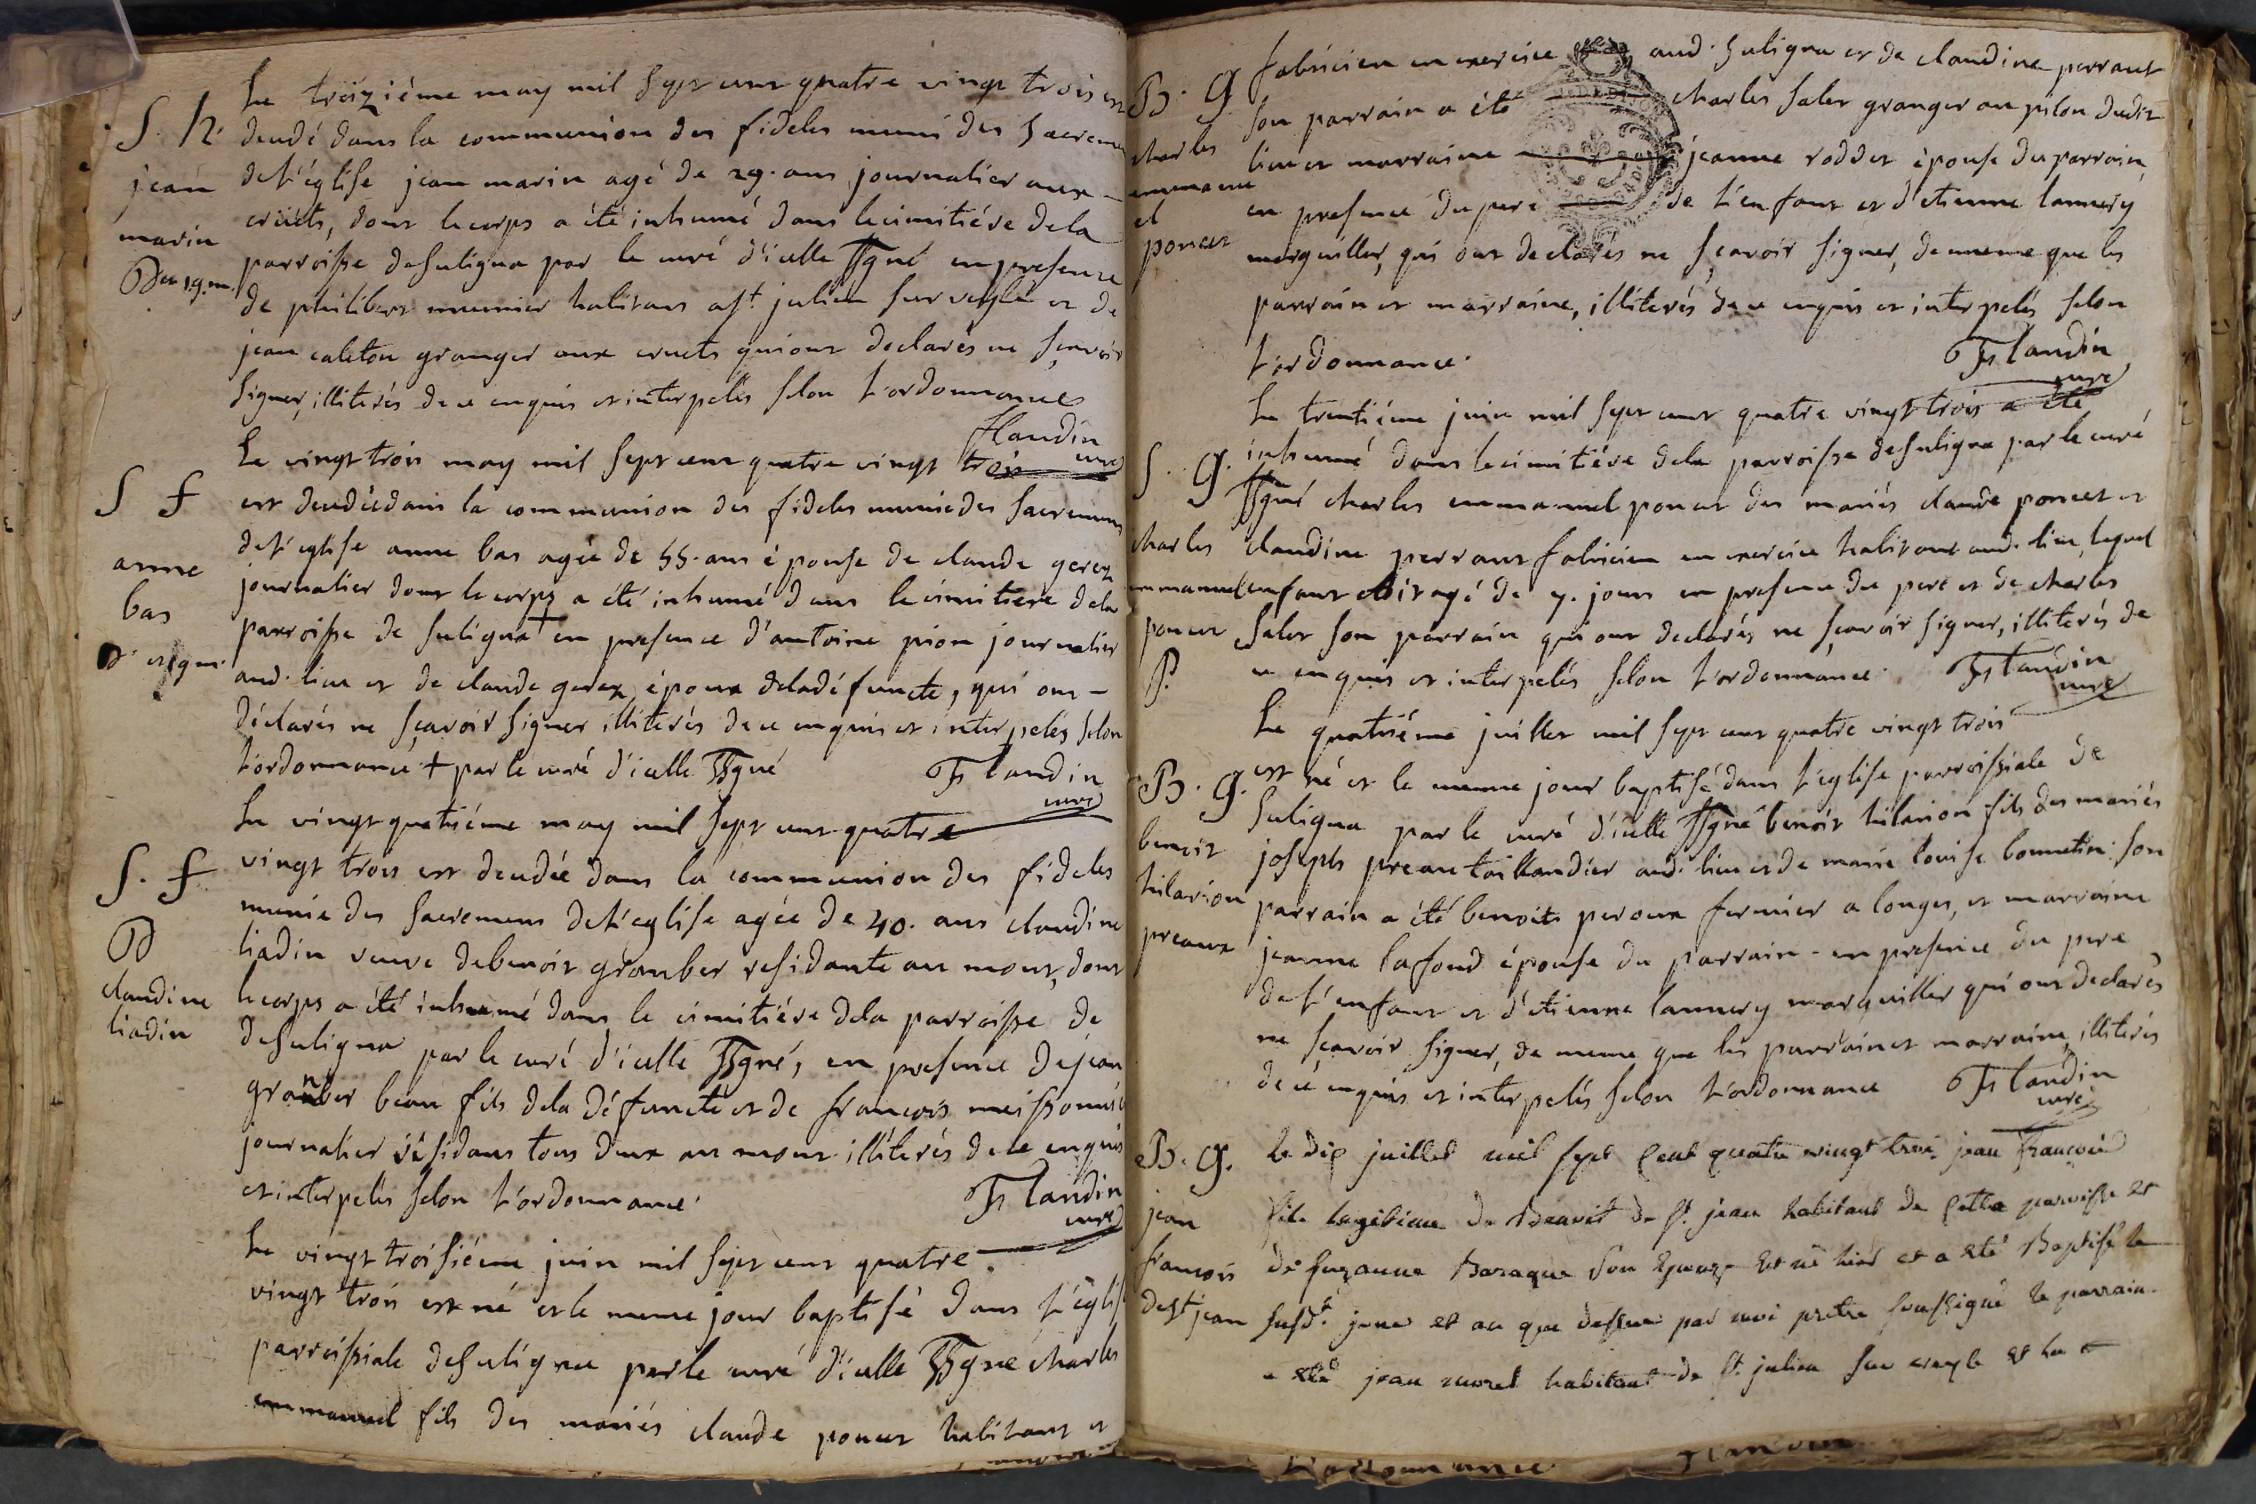 S. h.
jean
marin
Le treizième may mil sept cent quatre vingt trois est
décédé dans la communion des fideles muni des sacremens
de l'église jean marin agé de 29. ans journalier aux
cruets, dont le corps a été inhumé dans le cimitiére de la
parroisse de suligna par le curé d'icelle ssgné en presence
de philibert munier habitant a st julien sur veyle et de
jean caleton granger aux cruets qui ont declarés ne sçavoir
signer, illiterés de ce enquis et interpelés selon l'ordonnance
flandin
curé
S f
anne
bas
Le vingt trois may mil sept cent quatre vingt trois
est décédée dans la communion des fideles munie des sacremens
de l'eglise anne bas agée de 55. ans épouse de claude gerex
journalier dont le corps a été inhumé dans le cimitiere dela
parroisse de suligna + en presence d'antoine pion journalier
aud. lieu et de claude gerex époux deladéfuncte, qui ont
déclarés ne sçavoir signer illiterés de ce enquis et interpelés selon
l'ordonnance + par le curé d'icelle ssgné
Flandin
curé
S. f
D
claudine
liadin
Le vingt quatriéme may mil sept cent quatre
vingt trois est décédée dans la communion des fideles
munie des sacremens de l'eglise agée de 40. ans claudine
liadin veuve debenoit grauber residante au mont, dont
le corps a été inhumé dans le cimitiére dela parroisse de
desuligna par le curé d'icelle ssgné, en presence de jean
beau fils dela défuncte et de francois meissonnié
journalier résidans tous deux au mont illiterés de ce enquis
et interpelés selon l'ordonnance.
Flandin
curé
Le vingt troisiéme juin mil sept cent quatre
vingt trois est né et le meme jour baptisé dans l'église
parroissiale desuligna par le curé d'icelle ssgné charles
emmanuel fils des mariés claude poncet habitant et
B. G.
charles
emmanu
el
poncet
fabricien en exercice aud. suligna et de claudine perraut
son parrain a été charles saler granger au pilon dudit
lieu et marraine jeanne roddet épouse du parrain,
en presence du pere de l'enfant et d'etienne lannery
marguiller, qui ont declarés ne sçavoir signer, de meme que les
parrain et marraine, illiterés de ce enquis et interpelés selon
l'ordonnance.
Flandin
curé
S. G.
charles
emmanuel
poncet
P.
Le trentiéme juin mil sept cent quatre vingt trois a été
inhumé dans le cimitiére dela parroisse desuligna par le curé
ssgné charles emmanuel poncet des mariés claude poncet et
claudine perraut fabricien en exercice habitant aud. lieu, lequel
enfant etoit agé de 7. jours en presence du pere et de charles
saler son parrain qui ont declarés ne sçavoir signer, illiterés de
ce enquis et interpelés selon l'ordonnance.
Flandin
curé
B. G.
benoit
hilarion
preaux
Le quatriéme juillet mil sept cent quatre vingt trois
est né et le meme jour baptisé dans l'eglise parroissiale de
suligna par le curé d'icelle ssgné benoit hilarion fils des mariés
joseph preau taillandier aud. lieu et de marie louise bonnetin son
parrain a été benoit peroux fermier a longes, et marraine
jeanne lafond épouse du parrain - en presence du pere
de l'enfant et d'étienne lannery marguiller qui ont declarés
ne sçavoir signer, de meme que les parrain et marraine, illiterés
de ce enquis et interpelés selon l'ordonnance
Flandin
curé
B. G.
jean
francois
de st jean
le dix juillet mil sept cent quatre vingt trois jean francois
fils legitime de Benoit de st. jean habitant de cette parroisse et
de suzanne Baraque son epouse est né hier et a eté Baptisé le
susdt. jour et an que dessus par moi pretre soussigné le parrain
a eté jean morel habitant de st. julien sur veyle et la
l'ordonnance